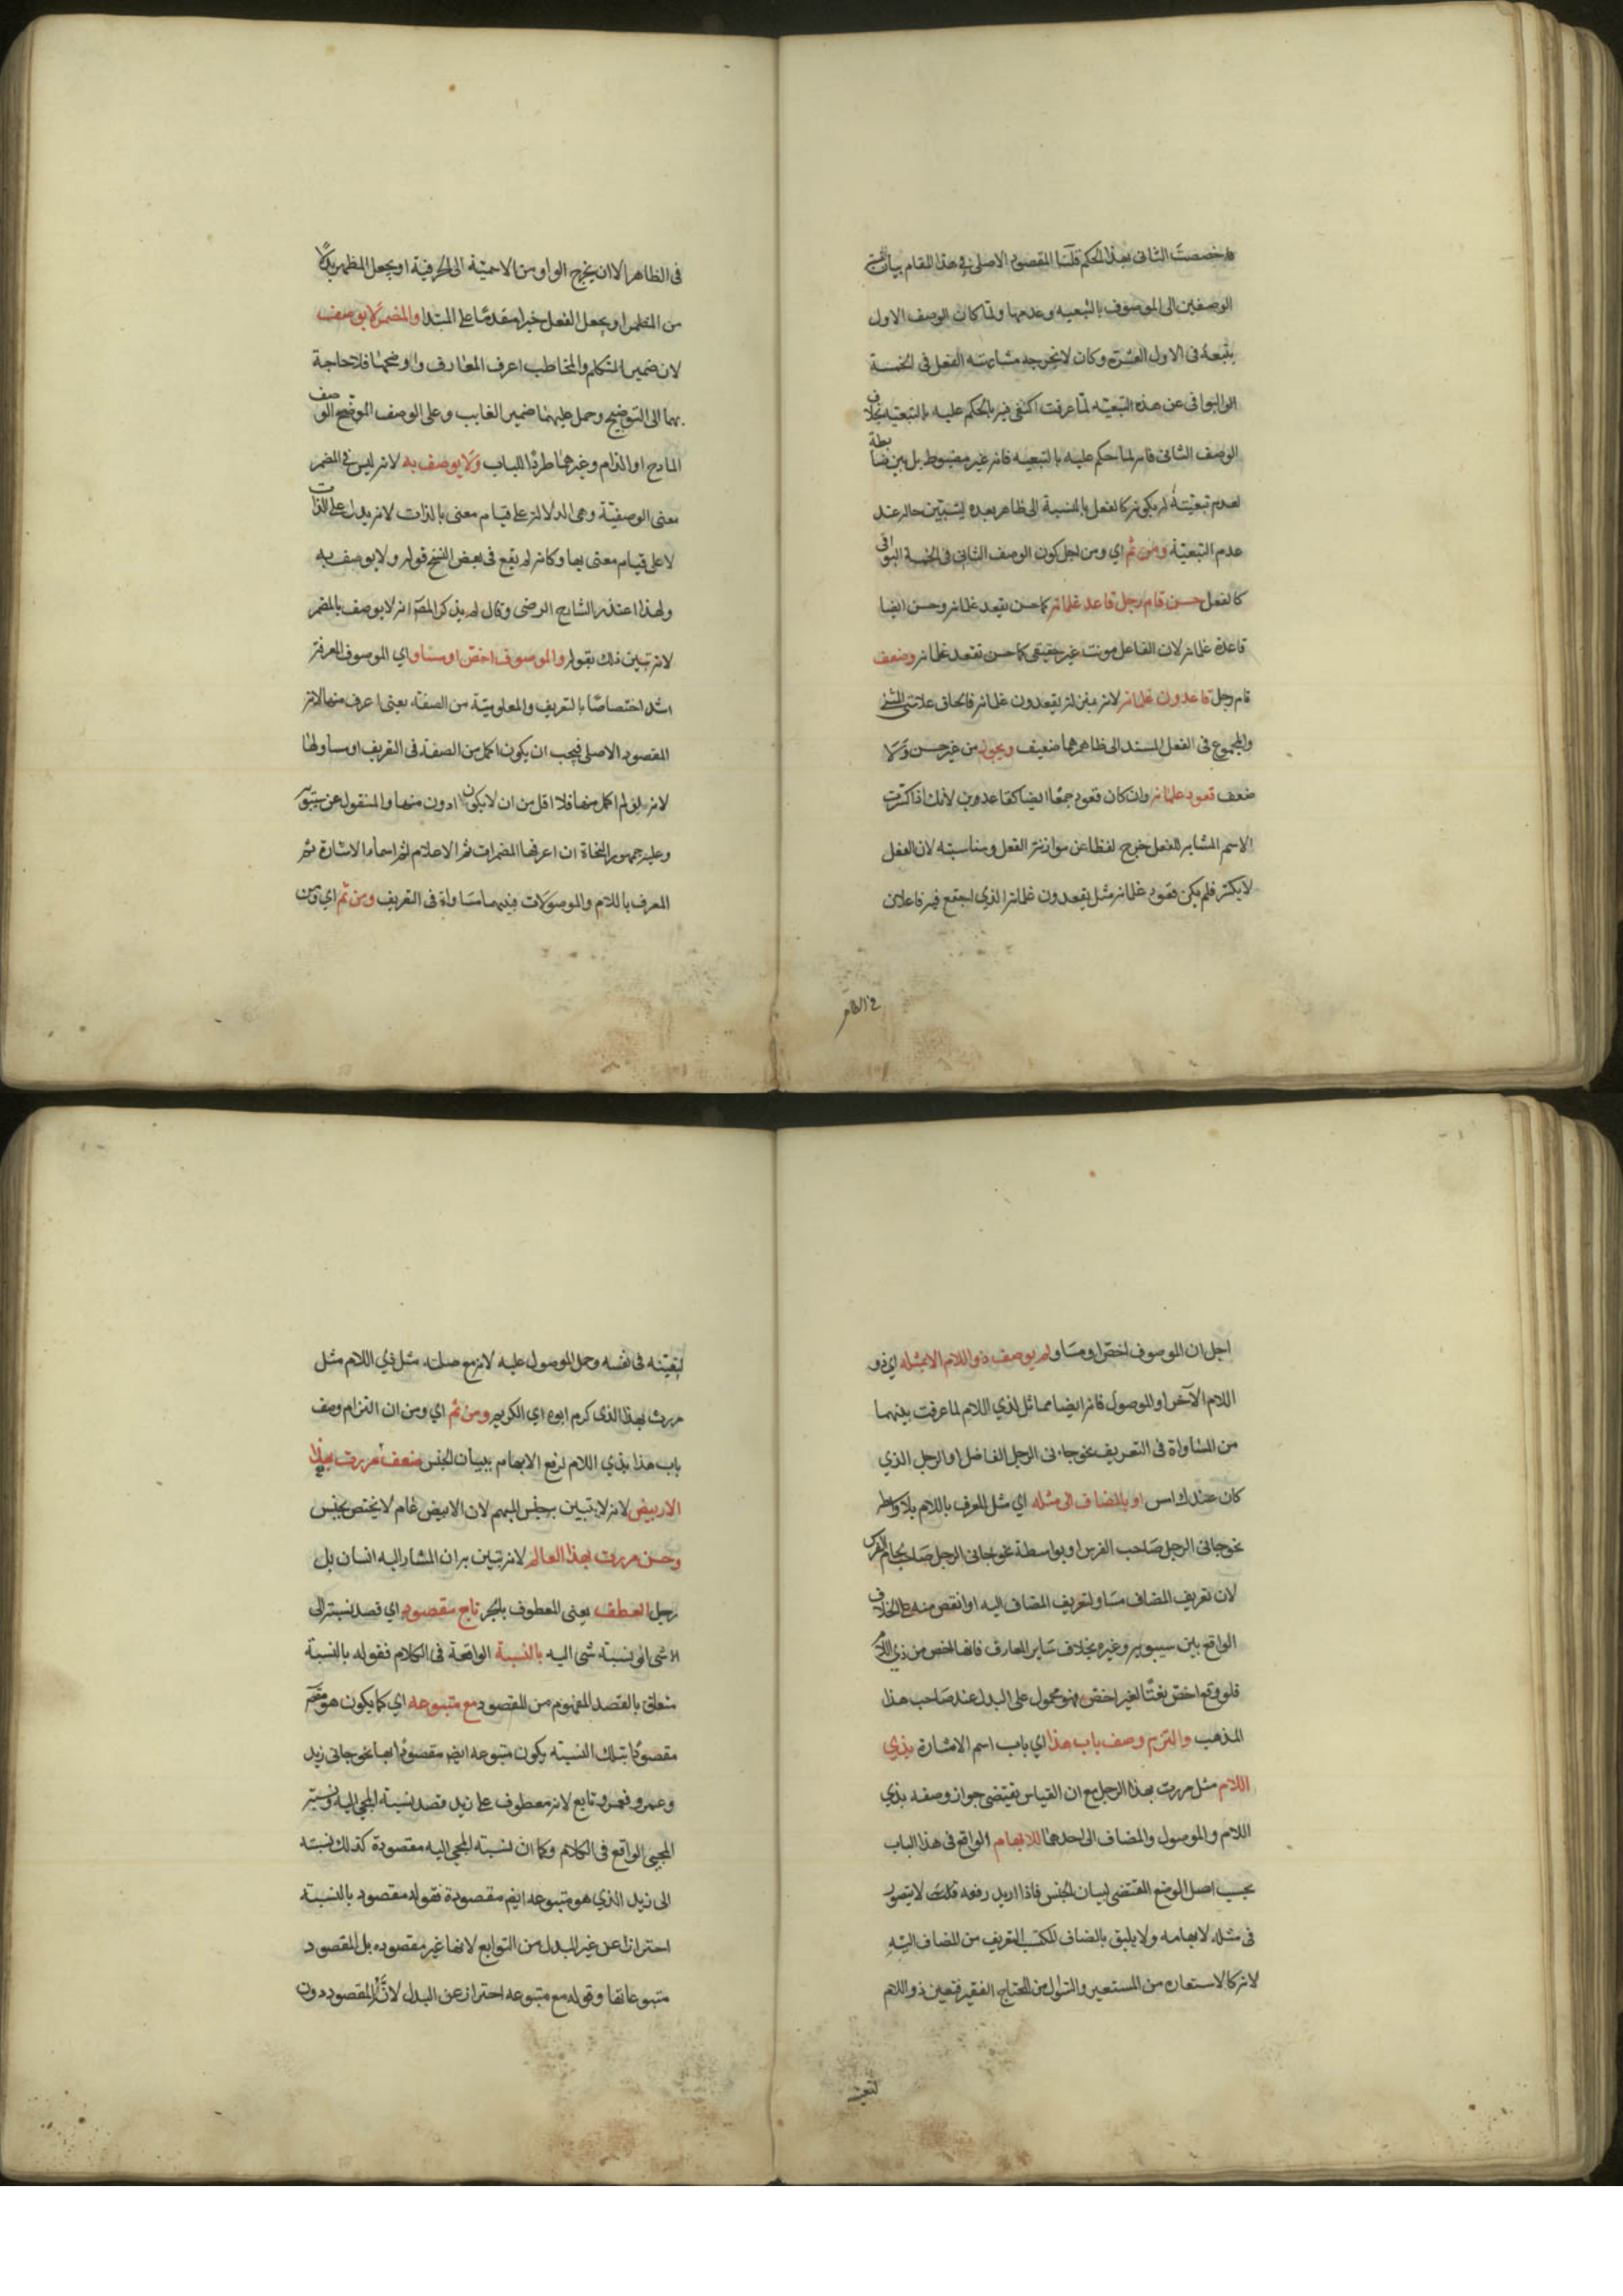 فلم خصصت الثانى بهذا الحكم قلنا المقصود الاصلى فى هذا المقام بيان نسبة
الوصفين الى الموصوف بالتبعيه وعدمها ولما كان الوصف الاول
يتبعه فى الاول العشرة وكان لا يخرجه مشابهته الفعل فى الخمسة
البواقى عن هذه التبعيّه لما عرفت اكتفى فيه بالحكم عليه بالتبعيه بخلاف
الوصف الثانى فانه لما حكم عليه بالتبعيه فانه غير مضبوط بل بين ضابطة
لعدم تبعيته لم يكونه كالفعل بالنسبة الى ظاهر بعده ليتبين حاله عند
عدم التبعيّة ومن ثم اي ومن اجل كون الوصف الثانى فى الخمسة البواقى
كالفعل حسن قام رجل قاعد غلمانه كما حسن يقعد غلمانه وحسن ايضا
قاعدة غلمانه لان الفاعل مونث غير حقيقى كما حسن تقعد غلمانه وضعف
قام رجل قاعدون غلمانه لانه بمنزلة يقعدون غلمانه فالحاق علامتى المثنى
والمجموع فى الفعل المسند الى ظاهرهما ضعيف ويجوز من غير حسن ولا
ضعف قعود غلمانه وان كان قعود جمعا ايضا كقاعدون لانك اذا كسرت
الاسم المشابه للفعل خرج لفظا عن موازنة الفعل ومناسبته لان الفعل
لا يكسر فلم يكن قعود غلمانه مثل يقعدون غلمانه الذي اجتمع فيه فاعلان
فى الظاهر
فى الظاهر الا ان يخرج الواو من الاسمية الى الحرفية او يجعل المظهر بدلا
من المضمر او يجعل الفعل خبرا مقدما على المبتدا والمضمر لا يوصف
لان ضمير المتكلم والمخاطب اعرف المعارف واوضحها فلا حاجة
بهما الى التوضيح وحمل عليهما ضمير الغايب وعلى الوصف الموضح الوصف
المادح او الذام وغيرهما طردا للباب ولا يوصف به لانه ليس فى المضمر
معنى الوصفيّة وهى الدلالة على قيام معنى بالذات لانه يدل على الذات
لا على قيام معنى بها وكانه لم يقع فى بعض النسخ قوله ولا يوصف به
ولهذا اعتذر الشارح الرضى وقال لم يذكر المصّ انه لا يوصف بالمضمر
لانه تبين ذلك بقوله والموصوف اخصّ او مساو اي الموصوف المعرفة
اشد اختصاصًا بالتعريف والمعلوميّة من الصفة يعنى اعرف منها لانه
المقصود الاصلى فيجب ان يكون اكمل من الصفة فى التعريف او مساو لها
لانه لو لم اكمل منها فلا اقل من ان لا يكون ادون منها والمنقول عن سيبويه
وعليه جمهور النحاة ان اعرفها المضمرات ثم الاعلام ثم اسماء الاشارة ثم
المعرف باللام والموصولات فبينهما مساواة فى التعريف ومن ثم اي ومن
اجل ان الموصوف اخصّ او مساو لم يوصف ذو اللام الا بمثله اي ذو
اللام الآخر او الموصول فانه ايضا مماثل لذي اللام لما عرفت بينهما
من المساواة فى التعريف نحو جاءنى الرجل الفاضل او الرجل الذي
كان عندك امس او بالمضاف الى مثله اي مثل المعرف باللام بلا واسطه
نحو جانى الرجل صاحب الفرس او بواسطة نحو جانى الرجل صاحب لجام الفرس
لان تعريف المضاف مساو لتعريف المضاف اليه او انقص منه على الخلاف
الواقع بين سيبويه وغيره بخلاف ساير المعارف فانها اخص من ذي اللام
فلو وقع اخص نعتا لغير اخص فهو محمول على البدل عند صاحب هذا
المذهب والتزم وصف باب هذا اي باب اسم الاشارة بذي
اللام مثل مررت بهذا الرجل مع ان القياس يقتضى جواز وصفه بذي
اللام والموصول والمضاف الى احدهما للابهام الواقع فى هذا الباب
بحسب اصل الوضع المقتضى لبيان الجنس فاذا اريد رفعه فلا يتصور
فى مثله لابهامه ولا يليق بالمضاف المكتسب التعريف من المضاف اليه
لانه كالاستعارة من المستعير والسؤال من المحتاج الفقير فتعين ذو اللام
لتعينه
لتعينه فى نفسه وحمل الموصول عليه لانه مع صلته مثل ذي اللام مثل
مررت بهذا الذى كرم ابوه اي الكريم ومن ثم اي ومن ان التزام وصف
باب هذا بذي اللام لرفع الابهام ببيان الجنس ضعف مررت بهذا
الابيض لانه لا يتبين به جنس المبهم لان الابيض عام لا يختص بجنس
وحسن مررت بهذا العالم لانه تبين به ان المشار اليه انسان بل
رجل العطف يعنى المعطوف بالحرف تابع مقصود اي قصد نسبته الى
الاشى او نسبة شى اليه بالنسبة الواقعة فى الكلام فقوله بالنسبة
متعلق بالقصد المفهوم من المقصود مع متبوعه اي كما يكون هو
مقصودا بتلك النسبة يكون متبوعه ايضا مقصودا بها نحو جانى زيد
وعمرو فعمرو تابع لانه معطوف على زيد قصد نسبة المجى اليه ونسبة
المجيى الواقع فى الكلام وكما ان نسبته المجى اليه مقصودة كذلك نسبته
الى زيد الذي هو متبوعه ايضا مقصودة فقوله مقصود بالنسبة
احترازا عن غير البدل من التوابع لانها غير مقصوده بل المقصود
متبوعاتها وقوله مع متبوعه احتراز عن البدل لانه المقصود دون